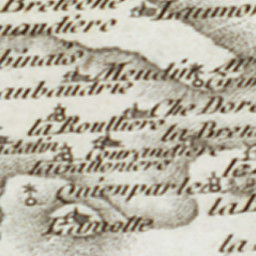 Breteche
Laumo
naudiere
binais
Meudin
aubaudrie
Che Dor
la Roulliere
la Bret
Courandiere
la valloniere
le
Quienparle
la
Lamotte
la